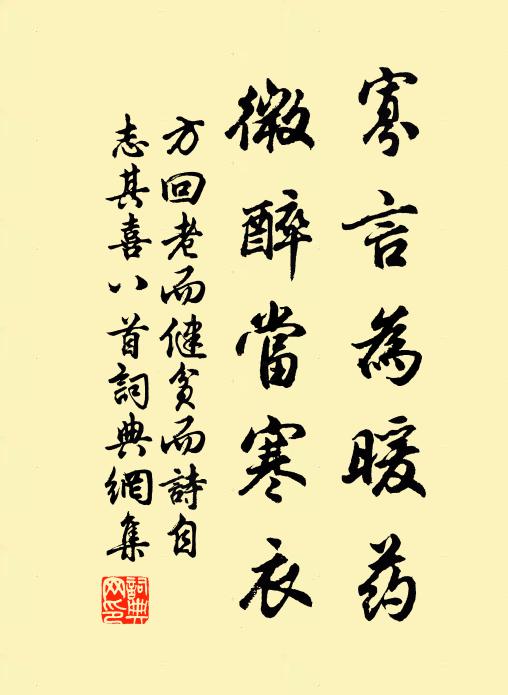 寡言為暖药
微醉當寒衣
方回老而健貧而詩自
志其喜八首詞典網集
詞典網印